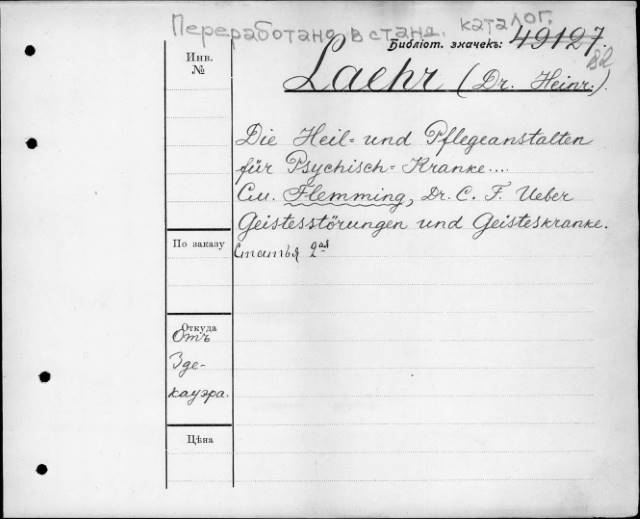 Переработано в станд. каталог.
Библіот. значекъ: 49127.
Инв. №
Laehr (Dr. Heinr.).
Die Heil- und Pflegeanstalten
für Psychisch-Kranke....
См. Flemming, Dr. C. F. Ueber
Geistesstörungen und Geisteskranke.
По заказу
Статья 2ая
Откуда
Отъ
Зде-
кауэра.
Цѣна